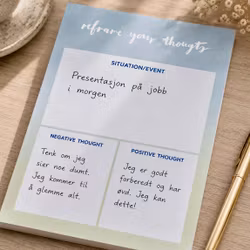 reframe your thougts
SITUATION/EVENT
Presentasjon på jobb
i morgen
NEGATIVE THOUGHT
Tenk om jeg
sier noe dumt.
Jeg kommer til
å glemme alt.
POSITIVE THOUGHT
Jeg er godt
forberedt og har
øvd. Jeg kan
dette!